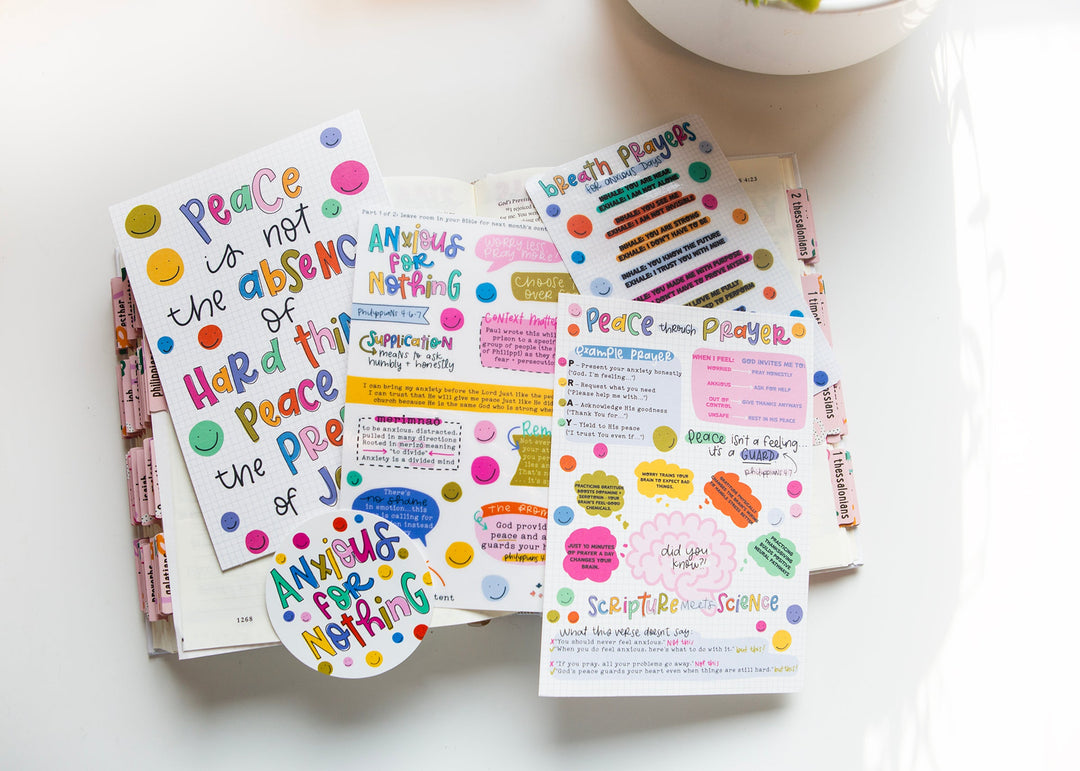 Peace
is not
the absence
of
Hard thin
Peace
the Pre
of J
Part 1 of 2: leave room in your Bible for next month's cont
Anxious
for
Nothing
Worry less
pray more!
Choose
over
Philippians 4:6-7
Supplication
means to ask
humbly + honestly
Context Matter
Paul wrote this whil
prison to a specif
group of people (the
of Philippi) as they f
fear + persecution
I can bring my anxiety before the Lord just like the peo
I can trust that He will give me peace just like He did
church because He is the same God who is strong whe
merimnao
to be anxious, distracted,
pulled in many directions
Rooted in merizo meaning
"to divide"
Anxiety is a divided mind
Rem
Not ever
your
you
lies
That's
There's
no shame
in emotion.
is calling for
instead
the prom
God provid
peace and a
guards your h
philippians 4
tent
Anxious
for
Nothing
breath prayers
for anxious days
INHALE: YOU ARE NEAR
EXHALE: I AM NOT ALONE
INHALE: YOU SEE ME
EXHALE: I AM NOT INVISIBLE
INHALE: YOU ARE STRONG
EXHALE: I DON'T HAVE TO BE
INHALE: YOU KNOW THE FUTURE
EXHALE: I TRUST YOU WITH MINE
INHALE: YOU MADE ME WITH PURPOSE
EXHALE: I DON'T HAVE TO PROVE MYSELF
LOVE ME FULLY
TO PERFORM
Peace through Prayer
Example Prayer
P - Present your anxiety honestly
("God, I'm feeling...")
R - Request what you need
("Please help me with...")
A - Acknowledge His goodness
("Thank You for...")
Y - Yield to His peace
("I trust You even if...")
WHEN I FEEL: GOD INVITES ME TO:
WORRIED PRAY HONESTLY
ANXIOUS ASK FOR HELP
OUT OF
CONTROL GIVE THANKS ANYWAY
UNSAFE REST IN HIS PEACE
Peace isn't a feeling...
it's a GUARD
philippians 4:7
PRACTICING GRATITUDE
BOOSTS DOPAMINE +
SEROTONIN - YOUR
BRAIN'S FEEL-GOOD
CHEMICALS.
WORRY TRAINS YOUR
BRAIN TO EXPECT BAD
THINGS.
JUST 10 MINUTES
OF PRAYER A DAY
CHANGES YOUR
BRAIN.
did you
know?!
PRACTICING
THANKSGIVING
BUILDS POSITIVE
NEURAL PATHWAYS
Scripture meets Science
What this verse doesn't say:
x "You should never feel anxious." Not this
✓ "When you do feel anxious, here's what to do with it." but this!
x "If you pray, all your problems go away." Not this
✓ "God's peace guards your heart even when things are still hard." but this!
1268
4:23
2 thessalonians
1 thessalonians
proverbs